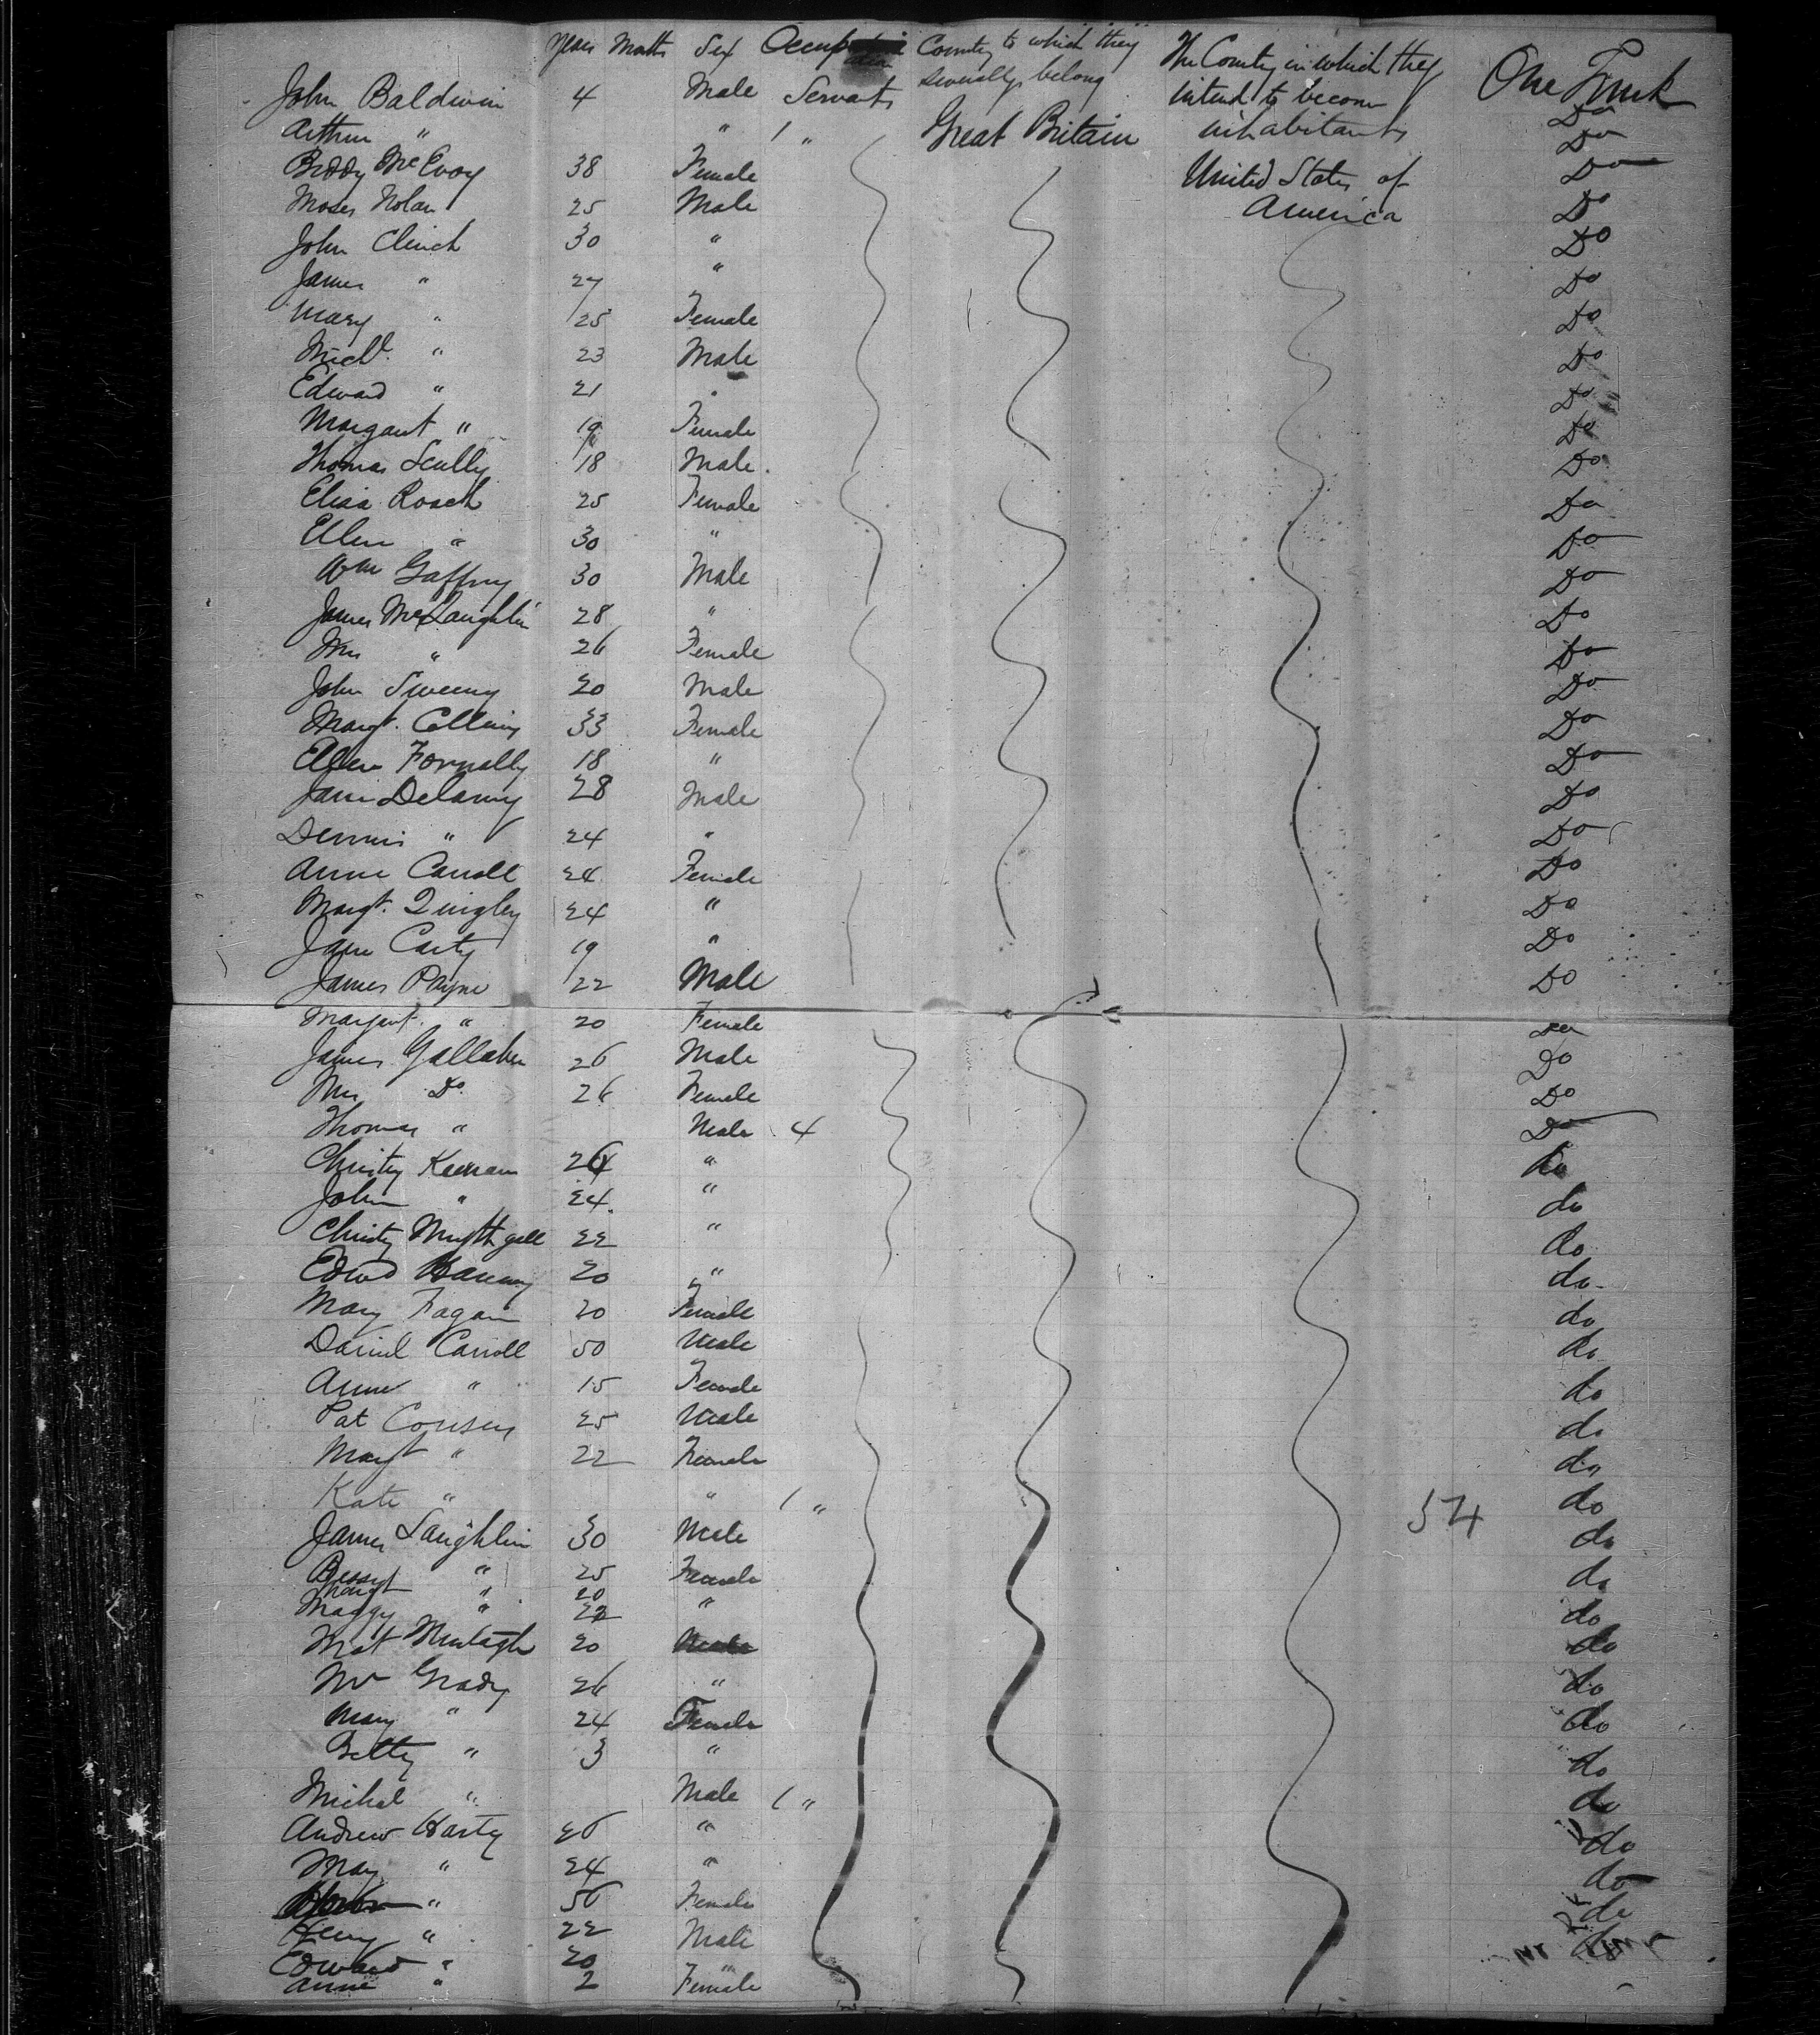 Years Month Sex Occupation Country to which they severally belong The Country in which they intend to become inhabitants One Trunk
John Baldwin 4 Male Servants Do
Arthur " " 1 " Great Britain Do
Biddy McEvoy 38 Female United States of Do
Moses Nolan 25 Male America Do
John Clinch 30 " Do
James " 27 " Do
Mary " 25 Female Do
Michl. " 23 Male Do
Edward " 21 " Do
Margaret " 19 Female Do
Thomas Scully 18 Male Do
Eliza Roach 25 Female Do
Ellen " 30 " Do
Wm Gaffny 30 Male Do
James McLaughlin 28 " Do
Mrs " 26 Female Do
John Sweeny 20 Male Do
Margt. Collins 33 Female Do
Ellen 18 " Do
Delaney 28 Male Do
Dennis " 24 " Do
Anne Carroll 24 Female Do
Margt. Quigley 24 " Do
Jane Carty 19 " Do
James Payne 22 Male Do
Margaret " 20 Female Do
James Gallaher 26 Male Do
Mrs Do 26 Female Do
Thomas " Male 4 Do
Christy Keenan " do
John " 24 " do
Christy 22 " do
Edwd 20 " do
Mary Fagan 20 Female do
Daniel Carroll 50 Male do
Anne " 15 Female do
Pat 25 Male do
Margt " 22 Female do
Kate " " 1 " 574 do
James Laughlin 30 Male do
Bessy " 25 Female do
Margt " 20
Maggy " 22 " do
Mat Murtagh 20 Male do
Grady 26 " do
Mary " 24 Female do
Betty " 3 " do
Michal " Male 1 " do
Andrew Harty 26 " do
May " 24 " do
" 50 Female do
Henry " 22 Male do
Edward " 20 "
Anne " 2 Female